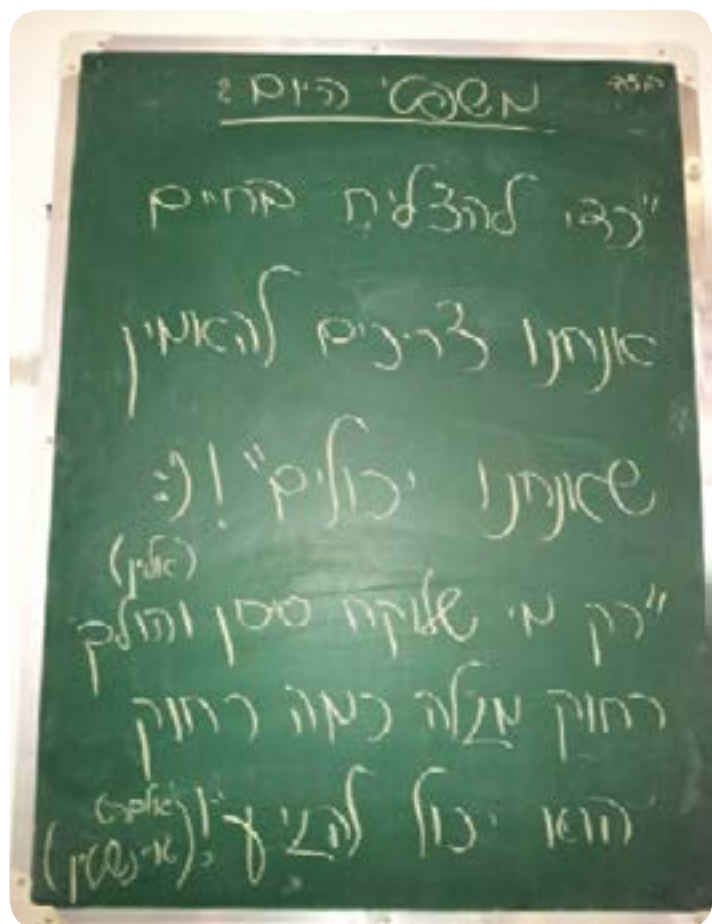 בס״ד
משפטי היום:
"כדי להצליח בחיים
אנחנו צריכים להאמין
שאנחנו יכולים"! (:
(אלין)
"רק מי שלוקח סיכון והולך
רחוק מגלה כמה רחוק
הוא יכול להגיע"! (אלברט
איינשטיין)